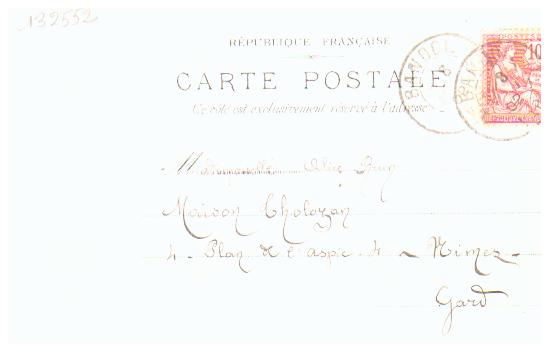 132552
RÉPUBLIQUE FRANÇAISE
CARTE POSTALE
Ce côté est exclusivement réservé à l'adresse
POSTES
10
BANDOL
BANDOL
Mademoiselle Alice Brun
Maison Tholozan
4 - Plan de l'aspic 4 - Nimez -
Gard